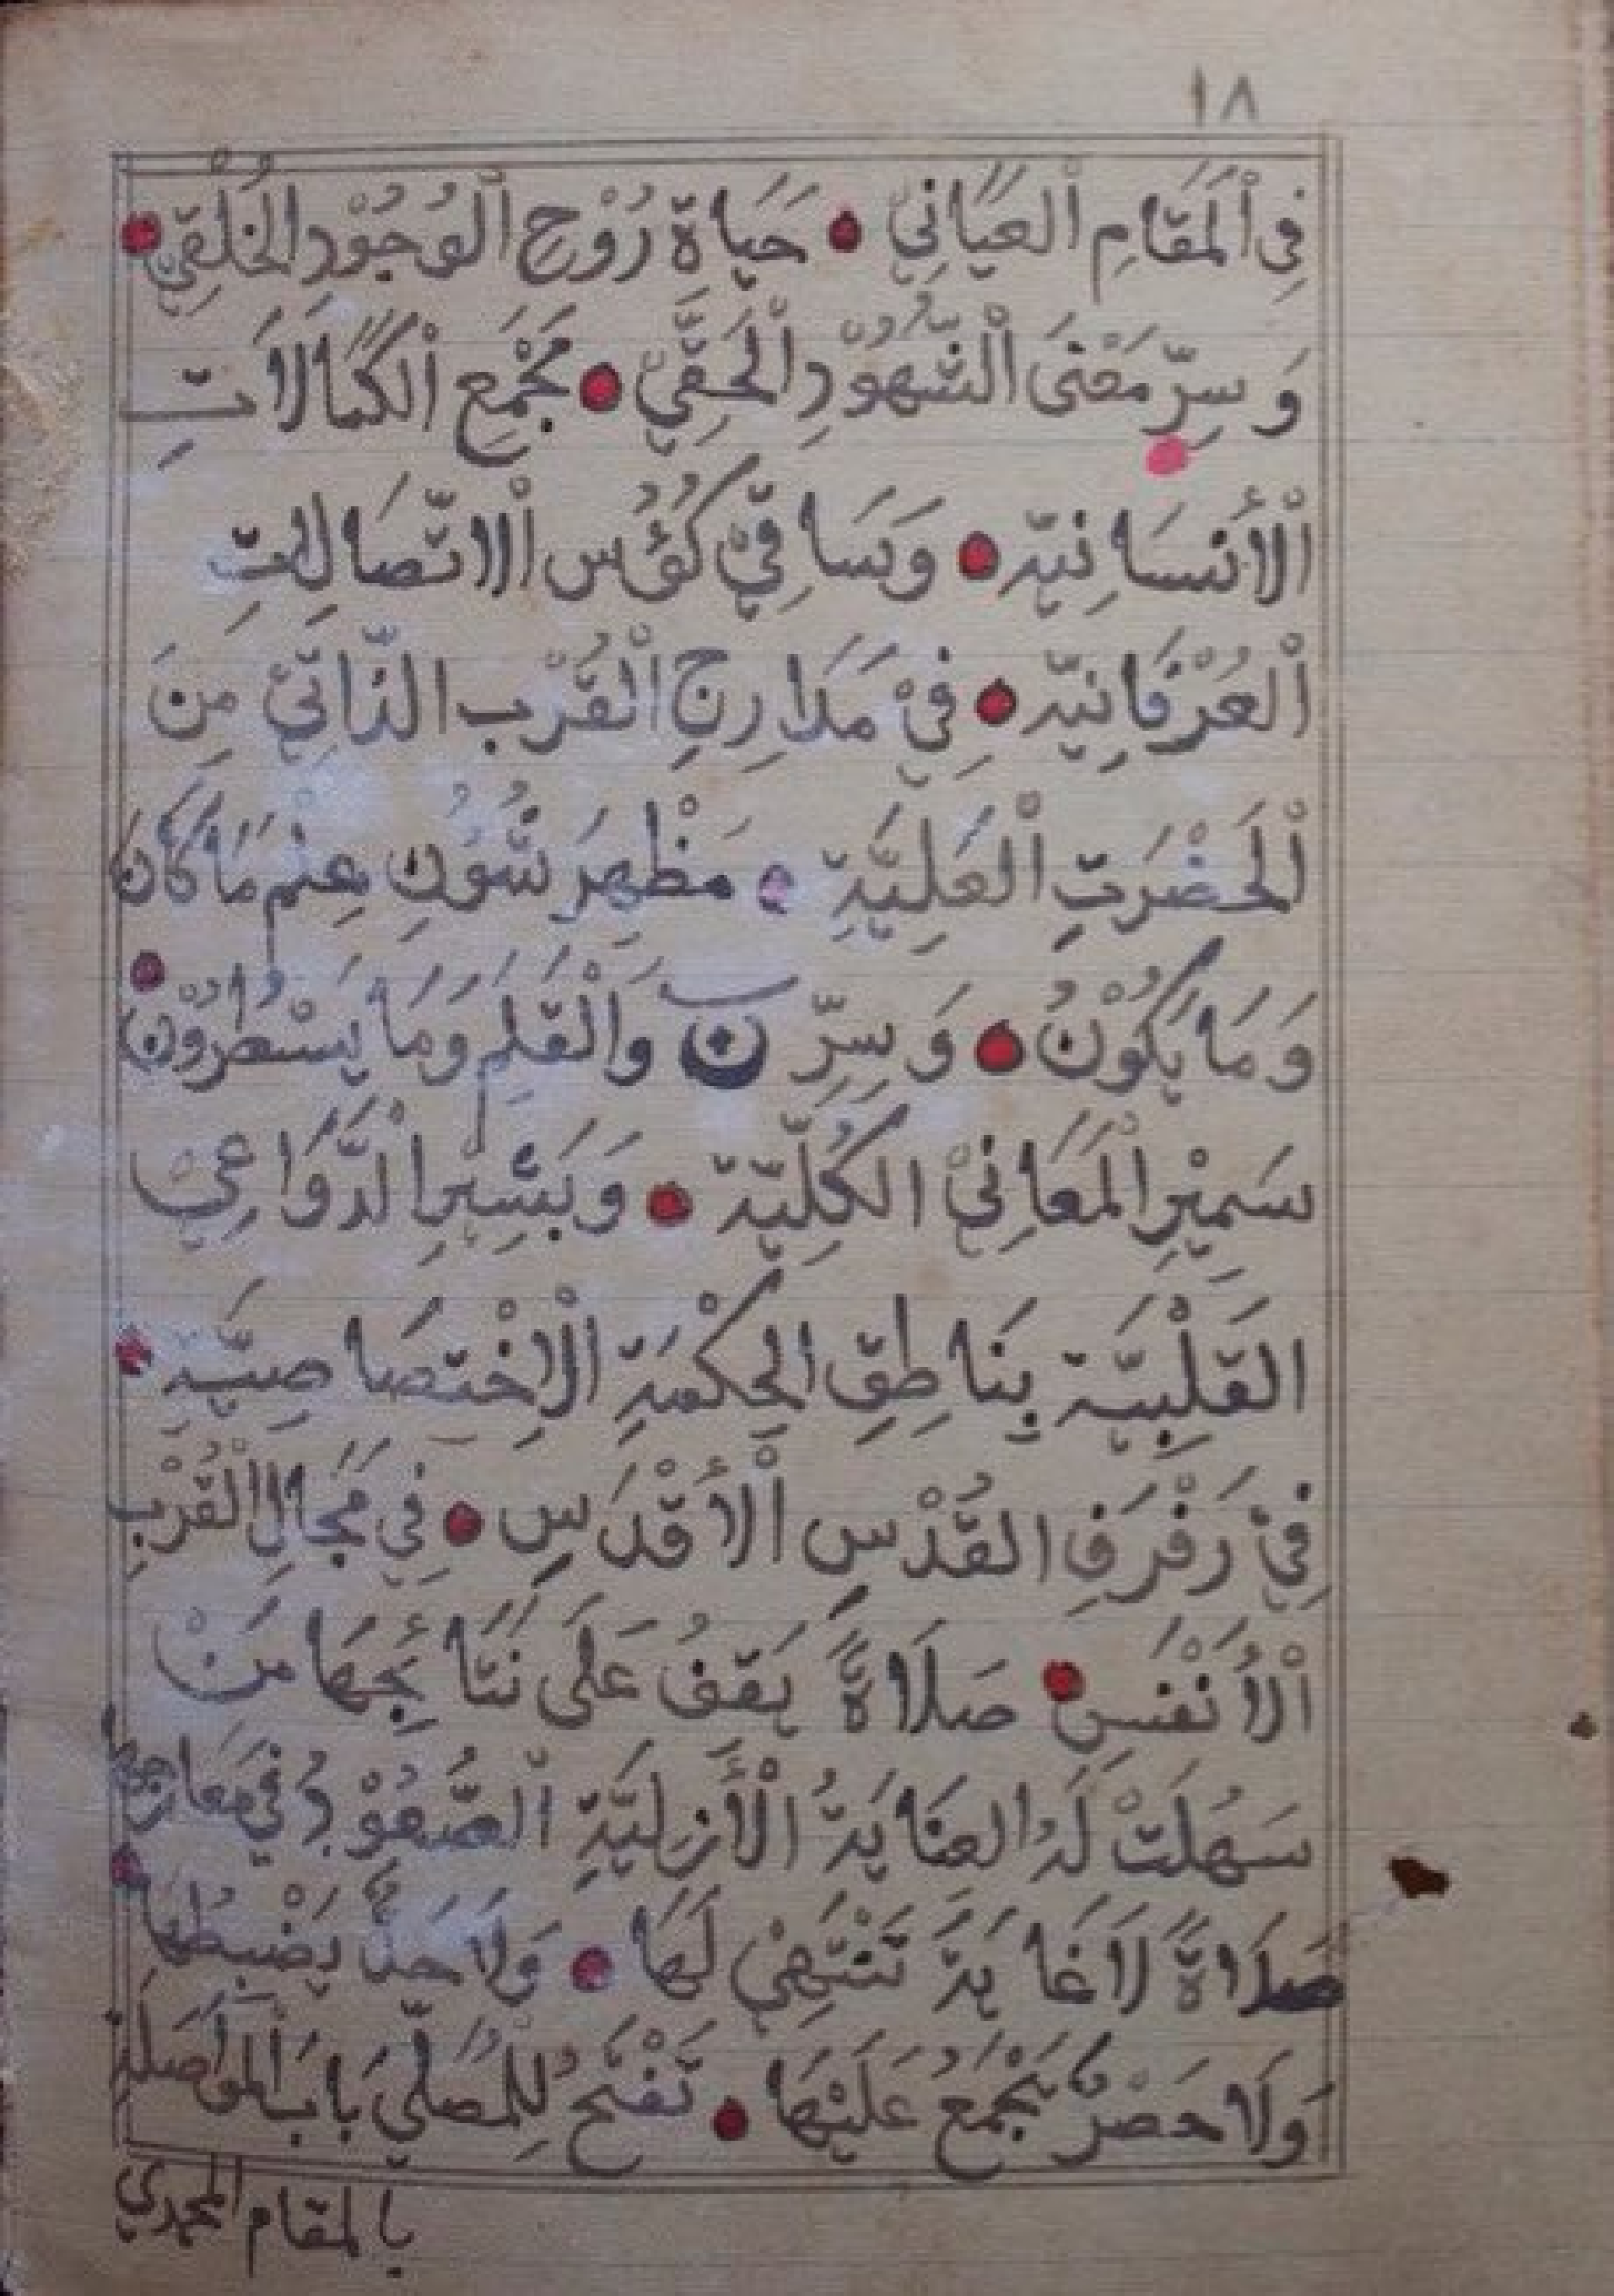 ١٨
فِي اْلمَقَامِ اْلعِيَانِيْ • حَيَاةِ رُوْحِ اْلوُجُوْدِ الْخُلْقِيْ •
وَسِرِّ مَعْنَى الْشُّهُوْدِ اْلحَقِّيْ • مَجْمَعِ اْلكَمَالَاتِ
اْلأنسَانِيّهِ • وَسَاقِيْ كُؤُس اْلاتّصَالَات
اْلعُرْفَانِيّهِ • فِيْ مَدَارِجِ اْلقُرْب الذّاتِيْ مِنَ
اْلحَضْرَتِ اْلعَلِيَّةِ • مَظْهِرَ شُّوُنِ عِلْمِ مَا كَانَ
وَمَا يَكُوْنُ • وَسِرِّ نٓ وَاْلقَلَمِ وَمَا يَسْطُرُوْنَ •
سَمِيْرِ اْلمَعَانِيْ الكُلِّيّةِ • وَبَشِيْرِ الدَّوَاعِيْ
القَلْبِيّةِ بِنَاطِقِ الحِكْمَةِ اْلاِخْتِصَاصِيَّةِ •
فِيْ رَفْرَفِ القُدْسِ اْلأَقْدَسِ • فِي مَجَالِ اْلقُرْبِ
اْلأَنْفَسِ • صَلَاةً يَقفُ عَلَى نَتَائِجِهَا مَنْ
سَهُلَتْ لَهُ العِنَايَةُ اْلأَزَلِيَّةِ اْلصُّعُوْدُ فِي مَعَارِجِهَا •
صَلَاةً لَا غَايَةَ تَنْتَهِيْ لَهَا • وَلَا حَدٌّ يَضْبِطُهَا
وَلَا حَصْرٌ يَجْمَعُ عَلَيْهَا • تَفْتَحُ لِلْمُصَلِّيَ بَابَ اْلمُوَاصَلَةِ
بالمقام المحمدي